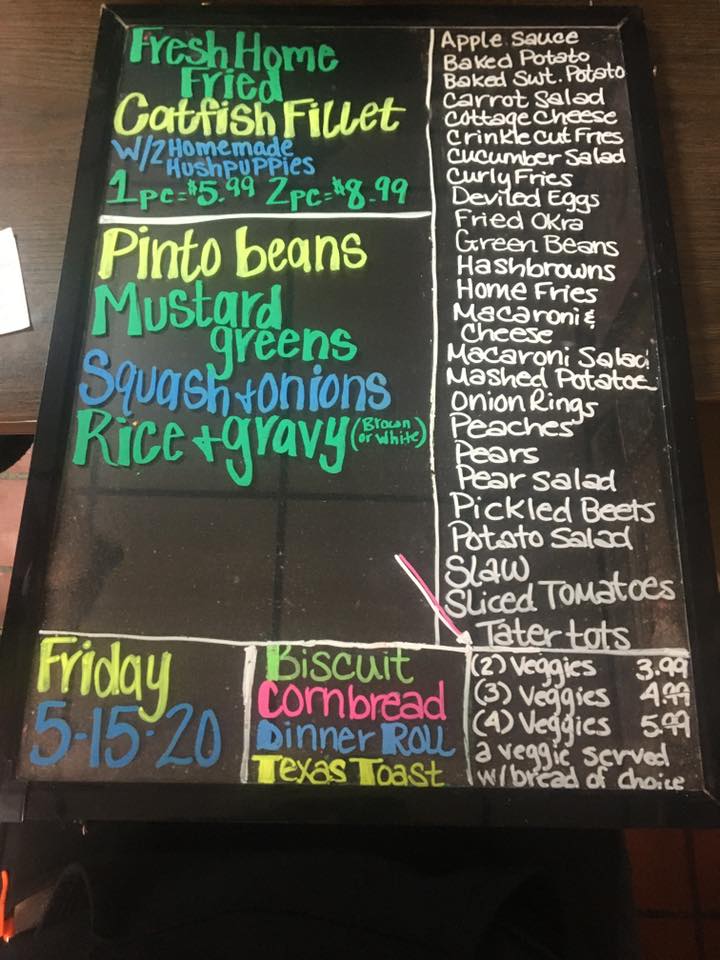 Fresh Home
Fried
Catfish Fillet
W/2 Homemade
Hushpuppies
1pc=$5.99 2pc=$8.99
Pinto beans
Mustard
greens
Squash + onions
Rice + gravy (Brown
or white)
Apple Sauce
Baked Potato
Baked Swt. Potato
Carrot Salad
Cottage Cheese
Crinkle Cut Fries
Cucumber Salad
Curly Fries
Deviled Eggs
Fried Okra
Green Beans
Hashbrowns
Home Fries
Macaroni &
Cheese
Macaroni Salad
Mashed Potatoe
Onion Rings
Peaches
Pears
Pear Salad
Pickled Beets
Potato Salad
Slaw
Sliced Tomatoes
Tater tots
Friday
5-15-20
Biscuit
Cornbread
Dinner Roll
Texas Toast
(2) Veggies 3.99
(3) Veggies 4.99
(4) Veggies 5.99
a veggie served
w/bread of choice